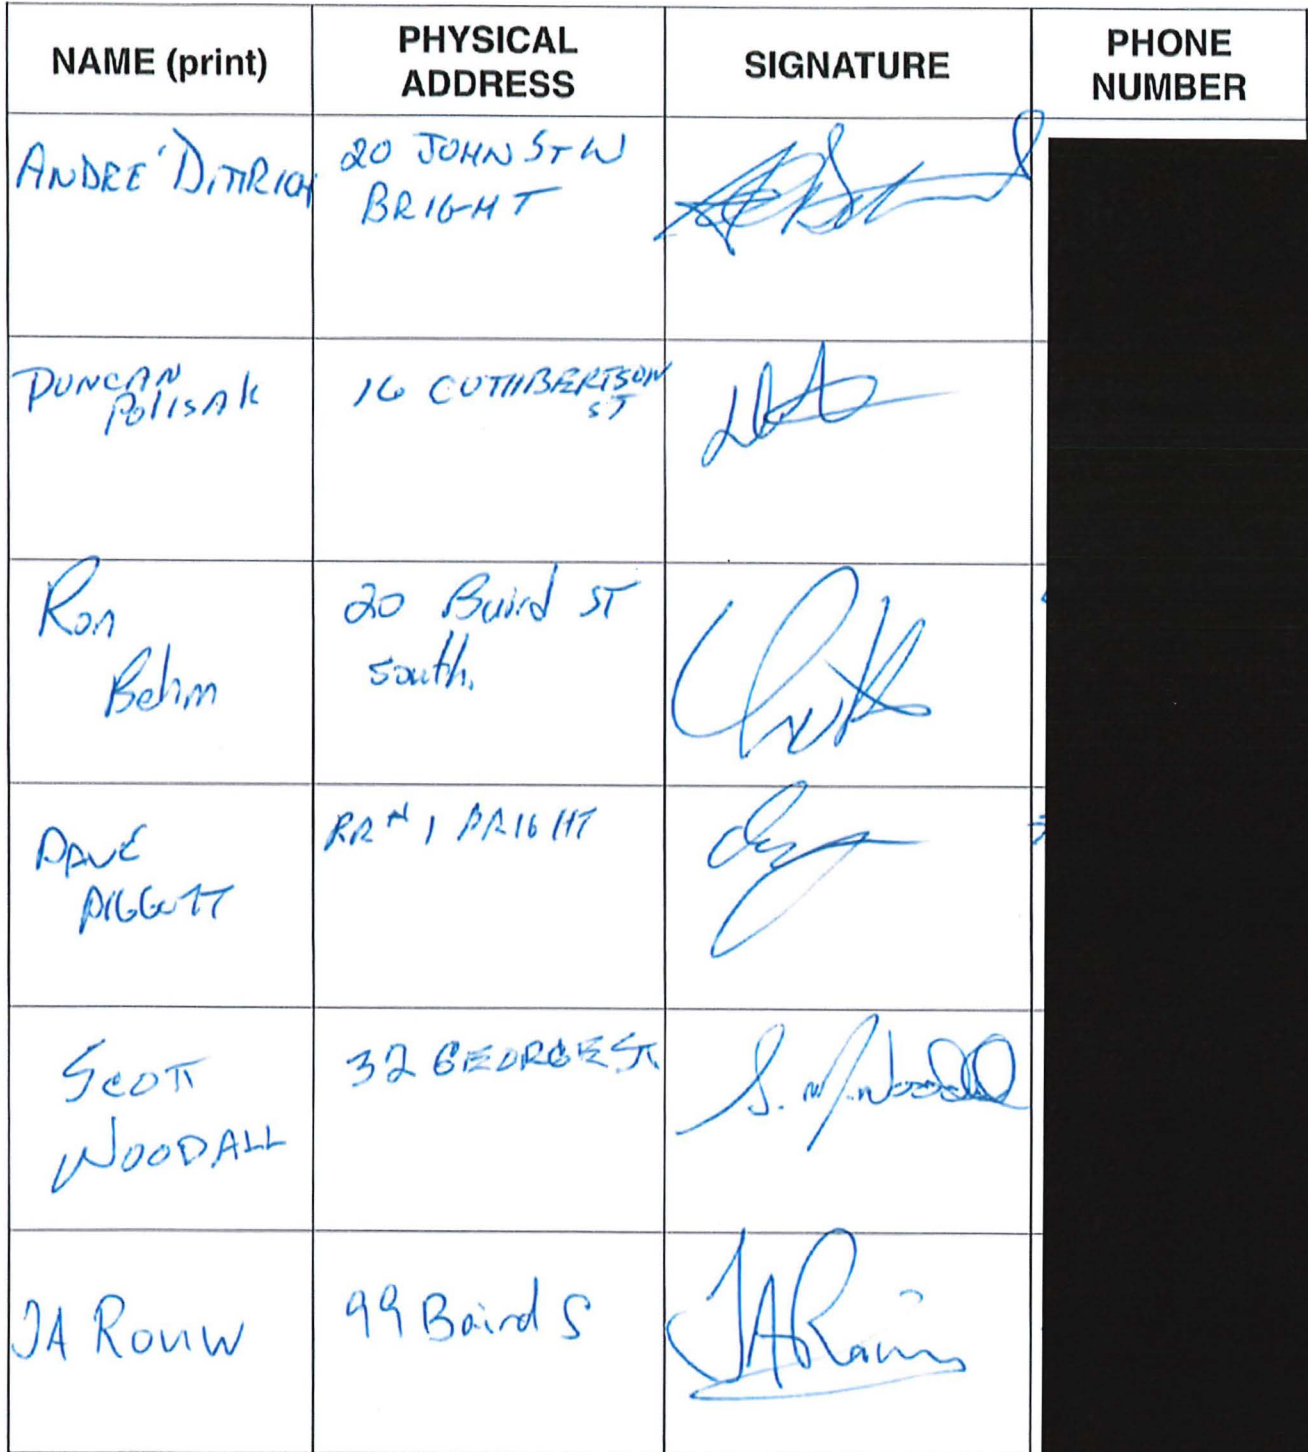 NAME (print)
PHYSICAL
ADDRESS
SIGNATURE
PHONE
NUMBER
ANDRE' DITTRICH
20 JOHN ST W
BRIGHT
DUNCAN
POLISAK
16 CUTHBERTSON
ST
Ron
Behm
20 Baird ST
South.
DAVE
PIGGOTT
RR # 1 BRIGHT
SCOTT
WOODALL
32 GEORGE ST
S. M. Woodall
JA Rouw
99 Baird S